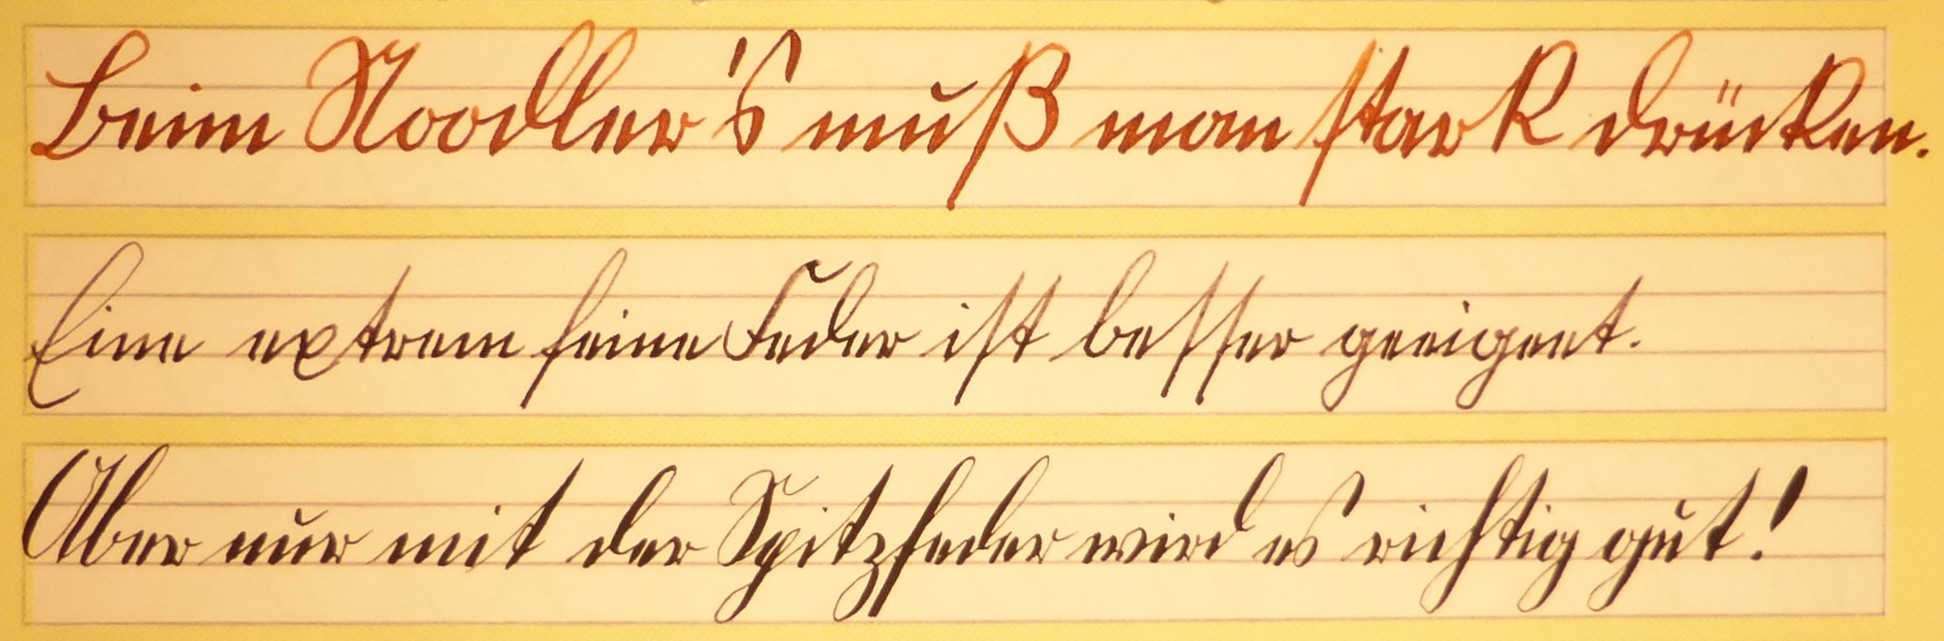 Beim Noodler's muß man stark drücken.
Eine extrem feine Feder ist besser geeignet.
Aber nur mit der Spitzfeder wird es richtig gut!